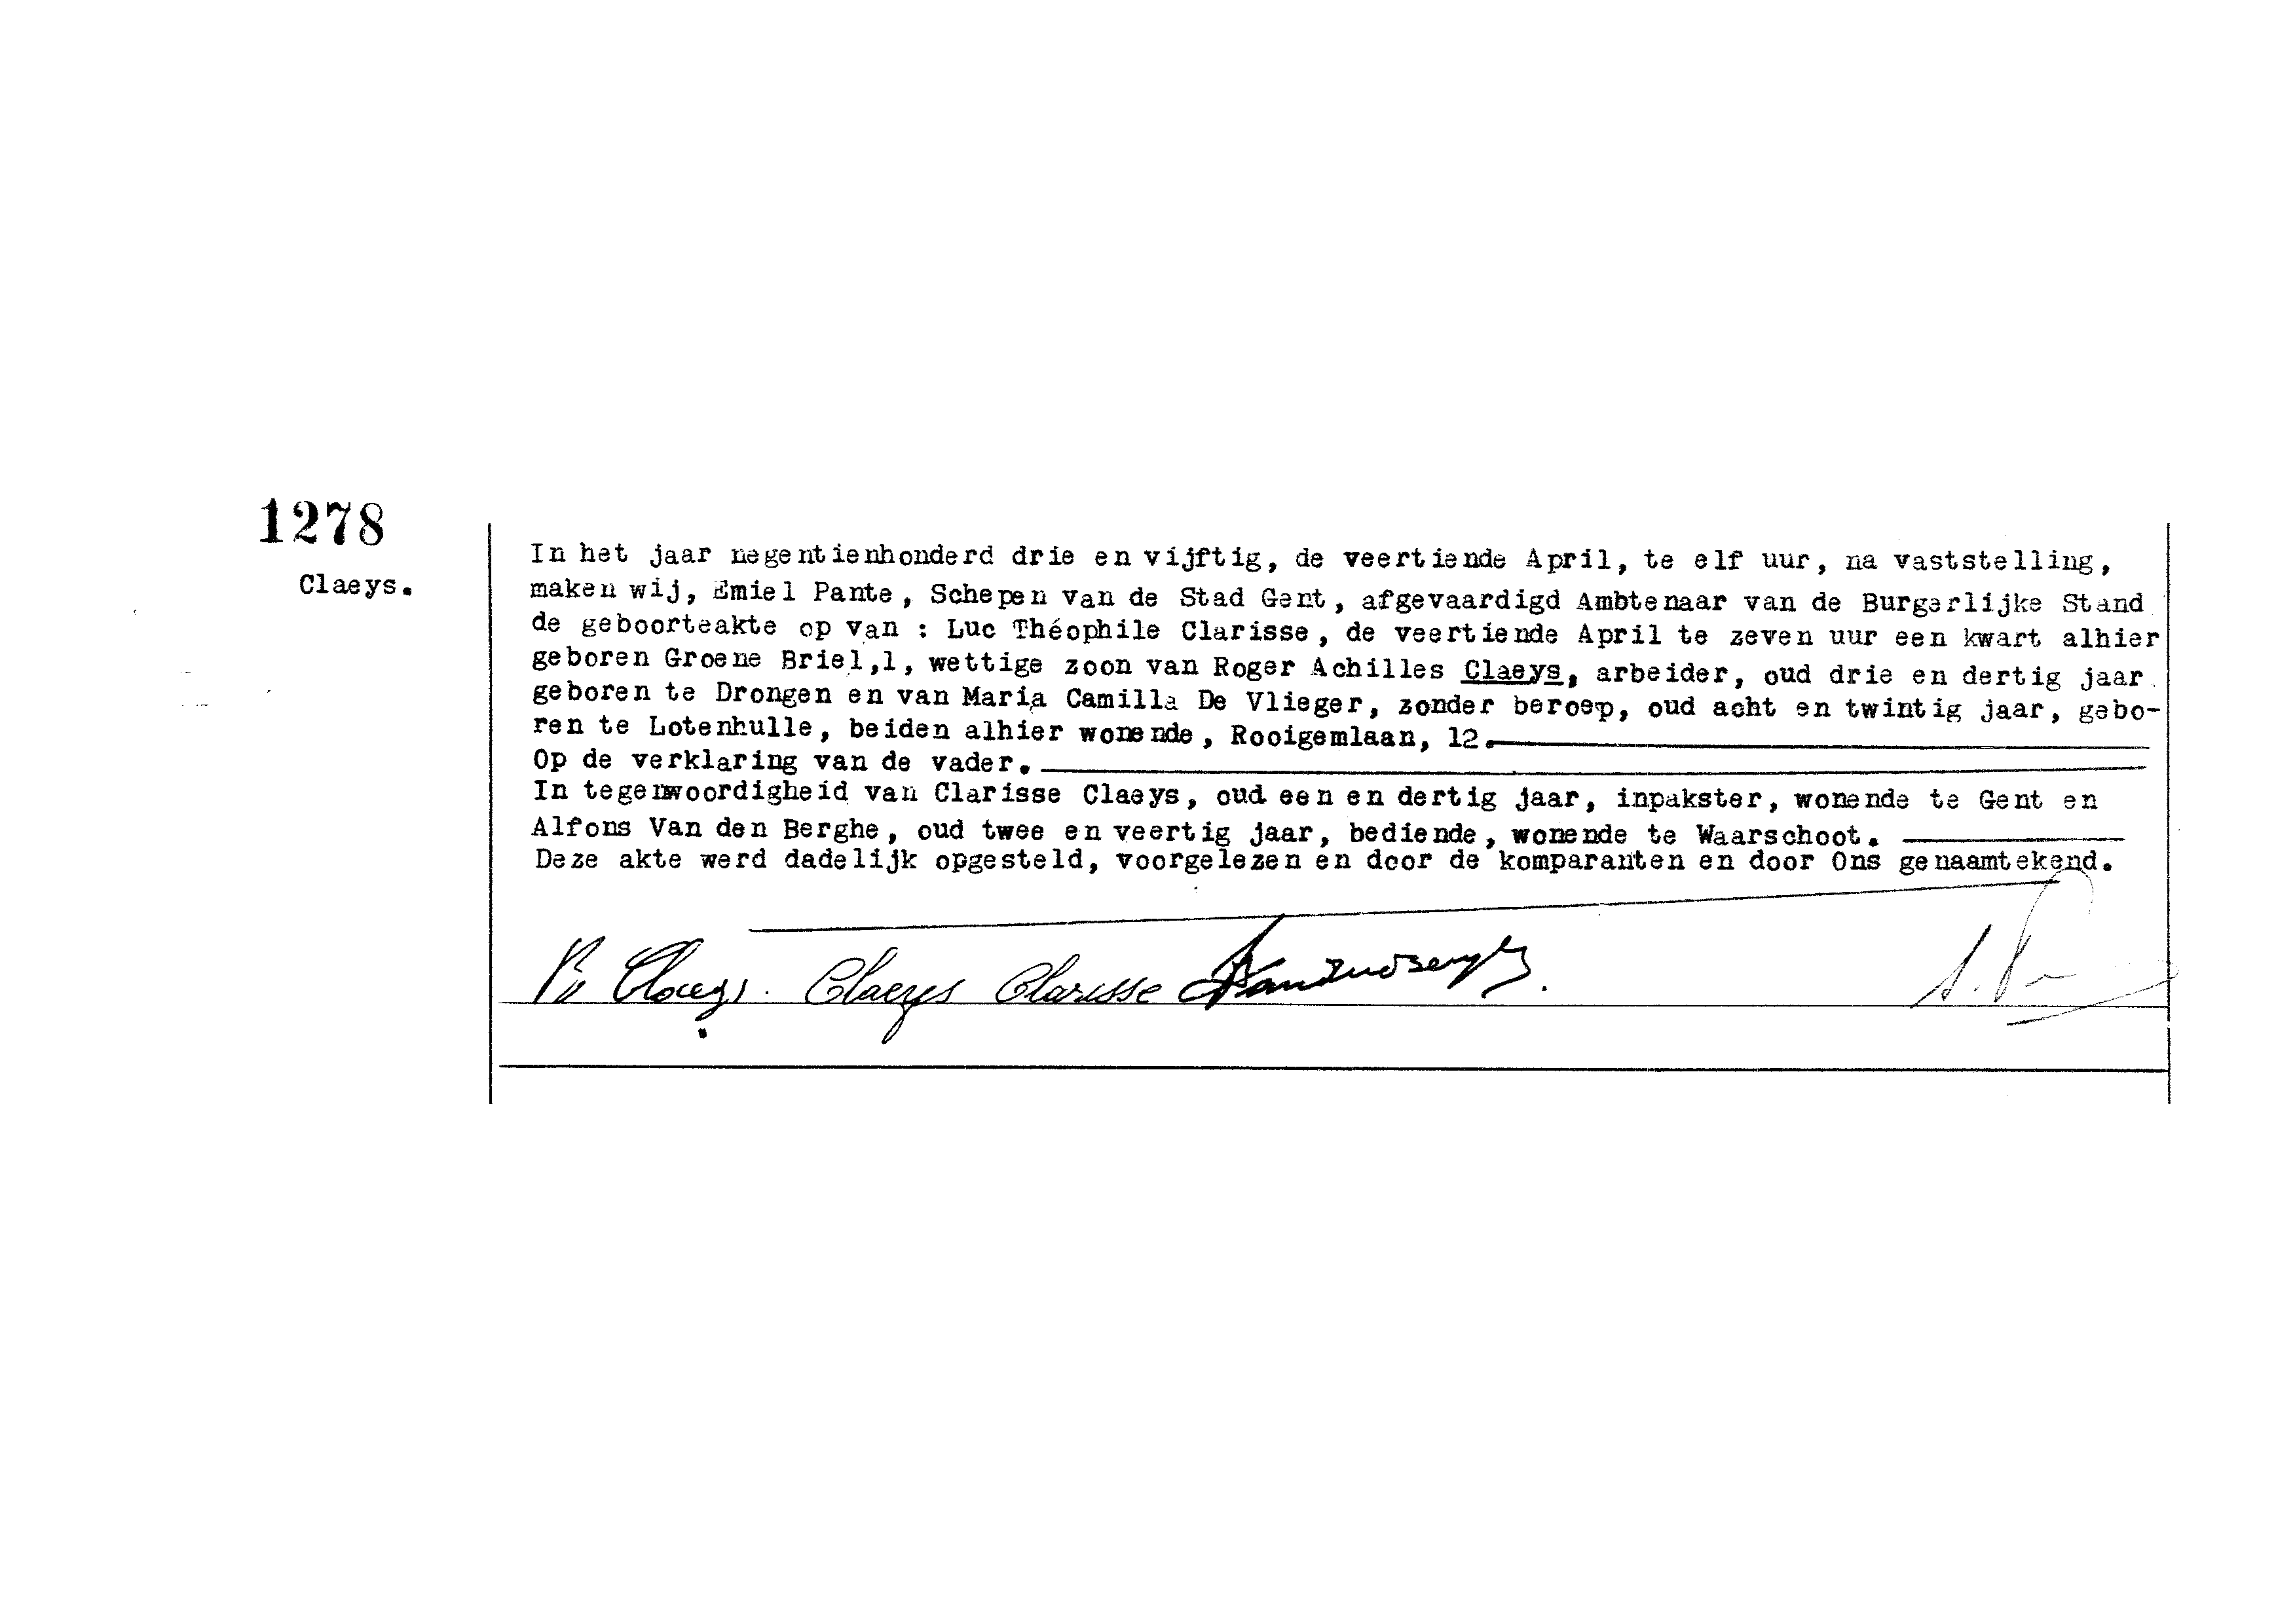 1278
Claeys.
In het jaar negentienhonderd drie en vijftig, de veertiende April, te elf uur, na vaststelling,
maken wij, Emiel Pante, Schepen van de Stad Gent, afgevaardigd Ambtenaar van de Burgerlijke Stand
de geboorteakte op van : Luc Théophile Clarisse, de veertiende April te zeven uur een kwart alhier
geboren Groene Briel,1, wettige zoon van Roger Achilles Claeys, arbeider, oud drie en dertig jaar
geboren te Drongen en van Maria Camilla De Vlieger, zonder beroep, oud acht en twintig jaar, gebo-
ren te Lotenhulle, beiden alhier wonende, Rooigemlaan, 12.
Op de verklaring van de vader.
In tegenwoordigheid van Clarisse Claeys, oud een en dertig jaar, inpakster, wonende te Gent en
Alfons Van den Berghe, oud twee en veertig jaar, bediende, wonende te Waarschoot.
Deze akte werd dadelijk opgesteld, voorgelezen en door de komparanten en door Ons genaamtekend.
Claeys. Claeys Clarisse Vandenberghe.